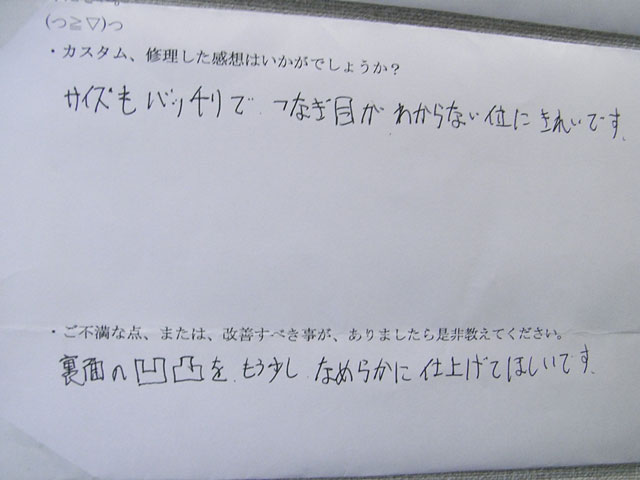 (っ≧▽)っ
・カスタム、修理した感想はいかがでしょうか？
サイズもバッチリで つなぎ目が わからない位に きれいです.
・ご不満な点、または、改善すべき事が、ありましたら是非教えてください。
裏面の凹凸を もう少し なめらかに 仕上げてほしいです.